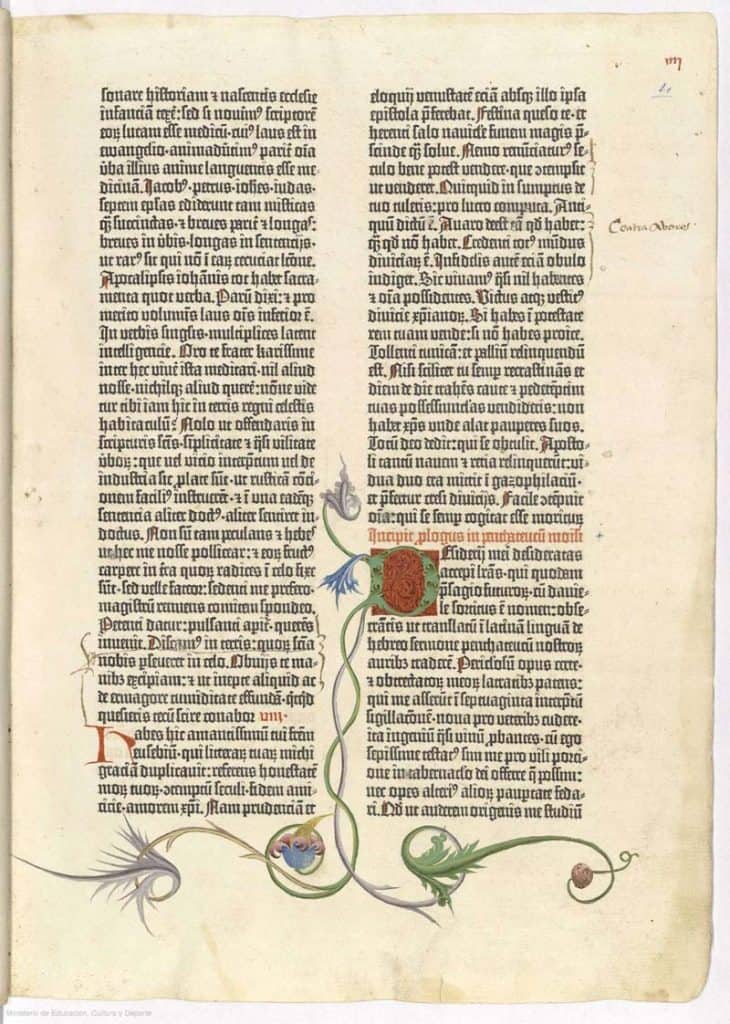 sonare historiam ⁊ nascentis ecclesie
infanciā texe̅: sed si nouim⁹ scriptorē
eoꝝ lucam esse medicū · cui⁹ laus est in
ewangelio · animaduertim⁹ parit̄ oīa
v̄ba illius anime languentis esse me-
dicinam. Jacob⁹ · petrus · ioh̄es · iudas ·
septem ep̄las ediderunt tam misticas
ꝙ̄ succinctas · ⁊ breues parit̄ ⁊ longas:
breues in v̄bis · longas in sentencijs ·
ut rar⁹ sit qui nō ī eaꝝ cecutiat lc̄one.
Apocalipsis iohānis tot habet sacra-
menta quot verba. Parū dixi: ⁊ pro
merito voluminis laus oīs inferior ē.
In verbis singlis · multiplices latent
intelligencie. Oro te frater karissime
inter hec vivē · ista meditari · nil aliud
nosse · nichilqꝫ aliud querē: nōne vide-
tur tibi iam hic in terris regni celestis
habitaculū? Nolo ut offendaris in
scripturis sc̄is · sīplicitate ⁊ q̄si vilitate
v̄boꝝ: que uel vicio interp̄tum uel de
industria sic ꝓlate sūt · ut rusticā cōci-
onem facili⁹ instruerēt · ⁊ ī vna eadēqꝫ
sentencia alit̄ doct⁹ · alit̄ sentiret in-
doctus. Non sū tam petulans ⁊ hebes
ut hec me nosse pollicear: ⁊ eoꝝ fruct⁹
carpere in t̄ra quoꝝ radices ī celo fixe
sūt · sed velle fateor: sedenti me prefero ·
magistrū renuens comitem spondeo.
Petenti datur: pulsanti aperit̄: querēs
inuenit. Discam⁹ in terris: quoꝝ scīa
nobis ꝑseueret in celo. Obuijs te ma-
nibꝫ excipiam: ⁊ ut inepte aliquid ac
de ermagore tumiditate effundā · q̄cqd
quesieris tecū scire conabor VIII.
Habes hic amantissimū tui frēm
eusebiū · qui litteraꝝ tuaꝝ michi
graciā duplicauit: referens honestatē
moꝝ tuoꝝ · ꝯtemptū seculi · fidem ami-
cicie · amorem xp̄i. Nam prudenciam et
eloquij venustatē eciā absqꝫ illo ip̄sa
epistola p̄ferebat. Festina queso te · et
herenti salo nauicle funem magis p̄-
scinde ꝙ̄ solue. Nemo renūciatur⁹ se-
culo bene potest vendere · que ꝯtempsit
ut venderet. Quicquid in sumptus de
tuo tuleris: pro lucro computa. Anti-
quū dictū ē. Auaro deest tā qd habet:
ꝙ̄ qd nō habet. Credenti tot⁹ mūdus
diuiciaꝝ ē. Infidelis autē eciā obulo
indiget. Sic viuam⁹ q̄si nil habentes
⁊ oīa possidentes. Victus atqꝫ vestit⁹
diuicie xp̄ianoꝝ. Si habes ī potestate
rem tuam vende: si nō habes proice.
Tollenti tunicā: et palliū relinquendū
est. Nisi scilicet tu semp recrastinās et
diem de die trahēs caute ⁊ pedetemptim
tuas possessiunclas vendideris: non
habet xp̄us unde alat pauperes suos.
Totū deo dedit: qui se obtulit. Aposto-
li tantū nauem ⁊ retia relinquerūt: vi-
dua duo era mittit ī gazophilaciū ·
et p̄fertur cresi diuicijs. Facile ꝯtempnit
oīa: qui se semp cogitat esse moriturū
Incipit ꝓlogus in penthateucū moisi
Desiderij mei desideratas
accepi lr̄as · qui quodam
p̄sagio futuroꝝ · cū danie-
le sortitus ē nomen: obse-
crātis ut translatū ī latinā linguā de
hebreo sermone pentateucū nostroꝝ
auribꝫ traderē. Periclosū opus certe ·
⁊ obtrectatoꝝ meoꝝ latratibꝫ patens:
qui me asserūt ī septuaginta interp̄tū
sigillac̄onē · noua pro veteribꝫ cudere ·
ita ingeniū q̄si vinū ꝓbantes · cū ego
sepissime testat⁹ sim me pro virili porci-
one in tabernaclo dei offerre q̄ possim:
nec opes alteri⁹ alioꝝ paupertate feda-
ri. Qd ut auderem origenis me studiū
Contra Avaros